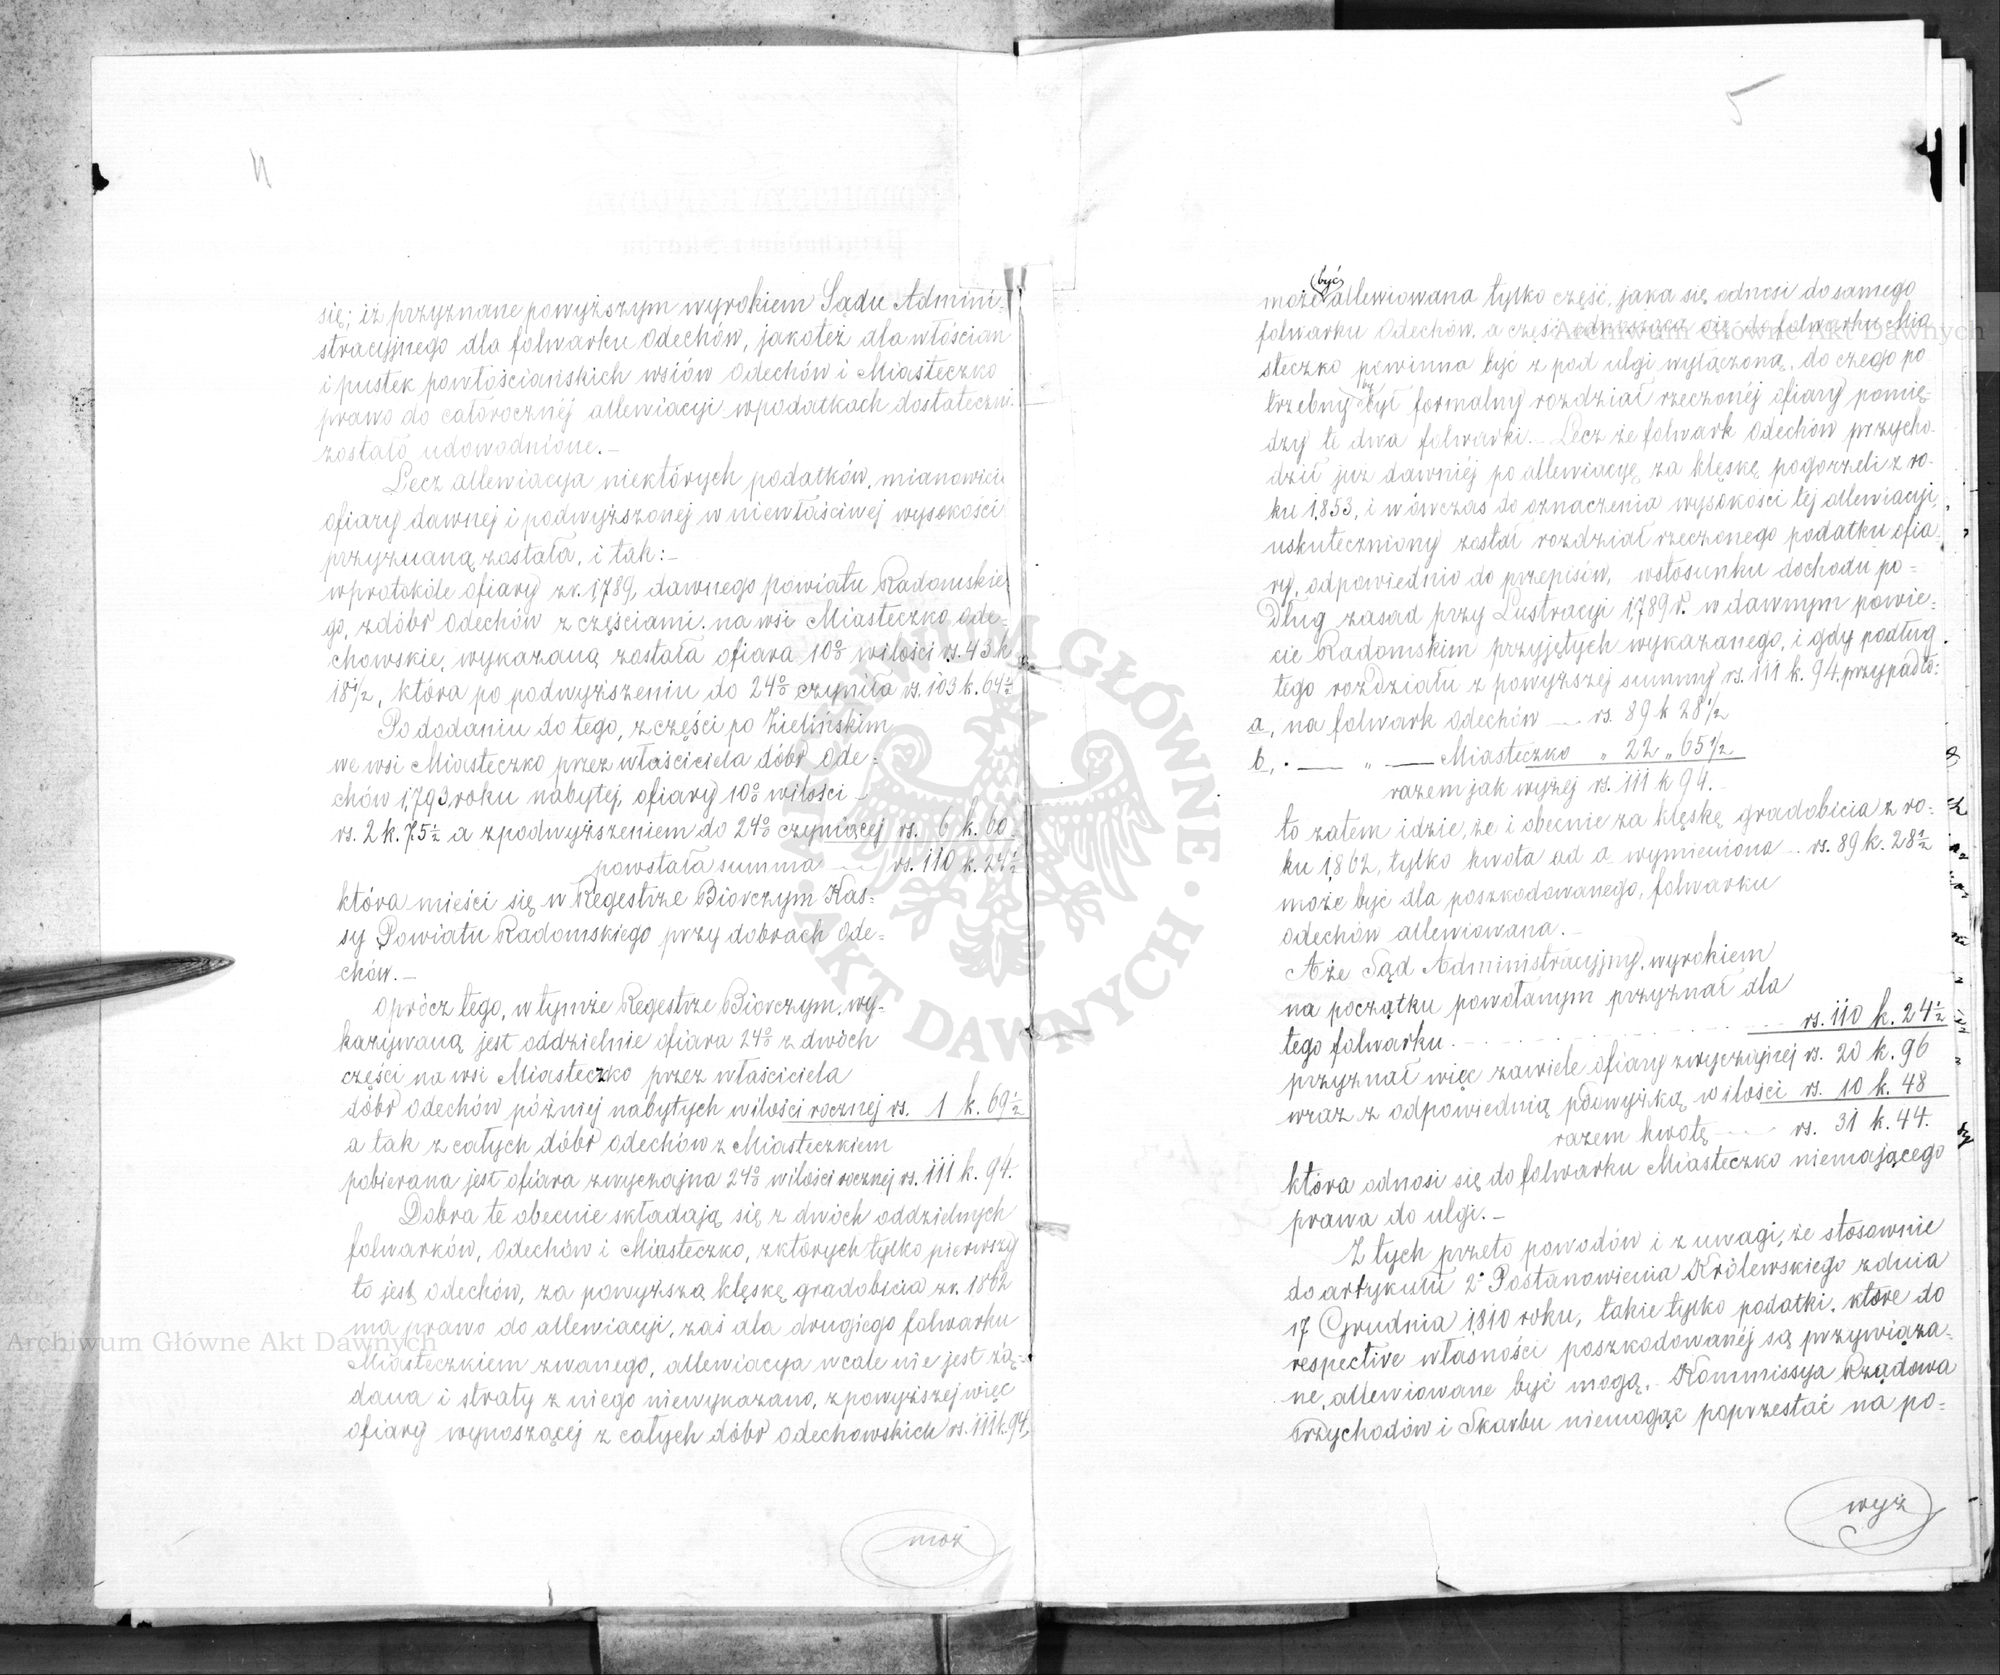 4
się; iż przyznane powyższym wyrokiem Sądu Admini-
stracyjnego dla folwarku Odechów, jakoteż dla włościan
i pustek powłościańskich wsiów Odechów i Miasteczko
prawo do całorocznéj allewiacyi w podatkach dostateczni
zostało udowodnione.—
Lecz allewiacya niektórych podatków, mianowici
ofiary dawnej i podwyższonej w niewłaściwej wysokości
przyznaną została, i tak:—
w protokóle ofiary z r. 1789, dawnego powiatu Radomskie
go, z dóbr Odechów z częściami, na wsi Miasteczko Ode-
chowskie, wykazaną została ofiara 10% w ilości rs. 43 k
18½, która po podwyższeniu do 24% czyniła rs. 103 k. 64½
Po dodaniu do tego, z części po Zielińskim
we wsi Miasteczko przez właściciela dóbr Ode-
chów 1793 roku nabytej, ofiary 10% w ilości —
rs. 2 k. 75½ a z podwyższeniem do 24% czyniącej rs. 6 k. 60
powstała summa — rs. 110 k. 24½
która mieści się w Regestrze Biorczym Kas-
sy Powiatu Radomskiego przy dobrach Ode-
chów.—
Oprócz tego, w tymże Regestrze Biorczym, wy-
kazywaną jest oddzielnie ofiara 24% z dwóch
części na wsi Miasteczko przez właściciela
dóbr Odechów później nabytych w ilości rocznej rs. 1 k. 69½
a tak z całych dóbr Odechów z Miasteczkiem
pobierana jest ofiara zwyczajna 24% w ilości rocznej rs. 111 k. 94.
Dobra te obecnie składają się z dwóch oddzielnych
folwarków, Odechów i Miasteczko, z których tylko pierwszy
to jest Odechów, za powyższą klęskę gradobicia z r. 1862
ma prawo do allewiacyi, zaś dla drugiego folwarku
Miasteczkiem zwanego, allewiacya wcale nie jest żą-
dana i straty z niego niewykazano, z powyższej więc
ofiary wynoszącej z całych dóbr Odechowskich rs. 111 k. 94,
moż
5
być
może allewiowana tylko część, jaka się odnosi do samego
folwarku Odechów, a część odnosząca się do folwarku Mia
steczko powinna być z pod ulgi wyłączoną, do czego po
trzebny by był formalny rozdział rzeczonéj ofiary pomię-
dzy te dwa folwarki.— Lecz że folwark Odechów przycho-
dził już dawniéj po allewiacyę za klęskę pogorzeli z ro-
ku 1853, i wówczas do oznaczenia wysokości tej allewiacyi,
uskuteczniony został rozdział rzeczonego podatku ofia-
ry, odpowiednio do przepisów, w stosunku dochodu po-
dług zasad przy Lustracyi 1789 r. w dawnym powie-
cie Radomskim przyjętych wykazanego, i gdy podług
tego rozdziału z powyższej summy rs. 111 k. 94, przypadło:
a, na folwark Odechów — rs. 89 k 28½
b, — " — Miasteczko " 22 " 65½
razem jak wyżej rs. 111 k 94.—
to zatem idzie, że i obecnie za klęskę gradobicia z ro-
ku 1862, tylko kwota ad a wymieniona — rs. 89 k. 28½
może być dla poszkodowanego, folwarku
Odechów allewiowana.—
A że Sąd Administracyjny, wyrokiem
na początku powołanym przyznał dla
tego folwarku . . . rs. 110 k. 24½
przyznał więc zawiele ofiary zwyczajnej rs. 20 k. 96
wraz z odpowiednią podwyżką w ilości rs. 10 k. 48
razem kwotę — rs. 31 k. 44.
która odnosi się do folwarku Miasteczko niemającego
prawa do ulgi.—
Z tych przeto powodów i z uwagi, że stosownie
do artykułu 2° Postanowienia Królewskiego z dnia
17 Grudnia 1810 roku, takie tylko podatki, które do
respective własności poszkodowanéj są przywiąza-
ne, allewiowane być mogą.— Kommissya Rządowa
Przychodów i Skarbu niemogąc poprzestać na po-
wyż
ARCHIWUM GŁÓWNE AKT DAWNYCH
Archiwum Główne Akt Dawnych
Archiwum Główne Akt Dawnych